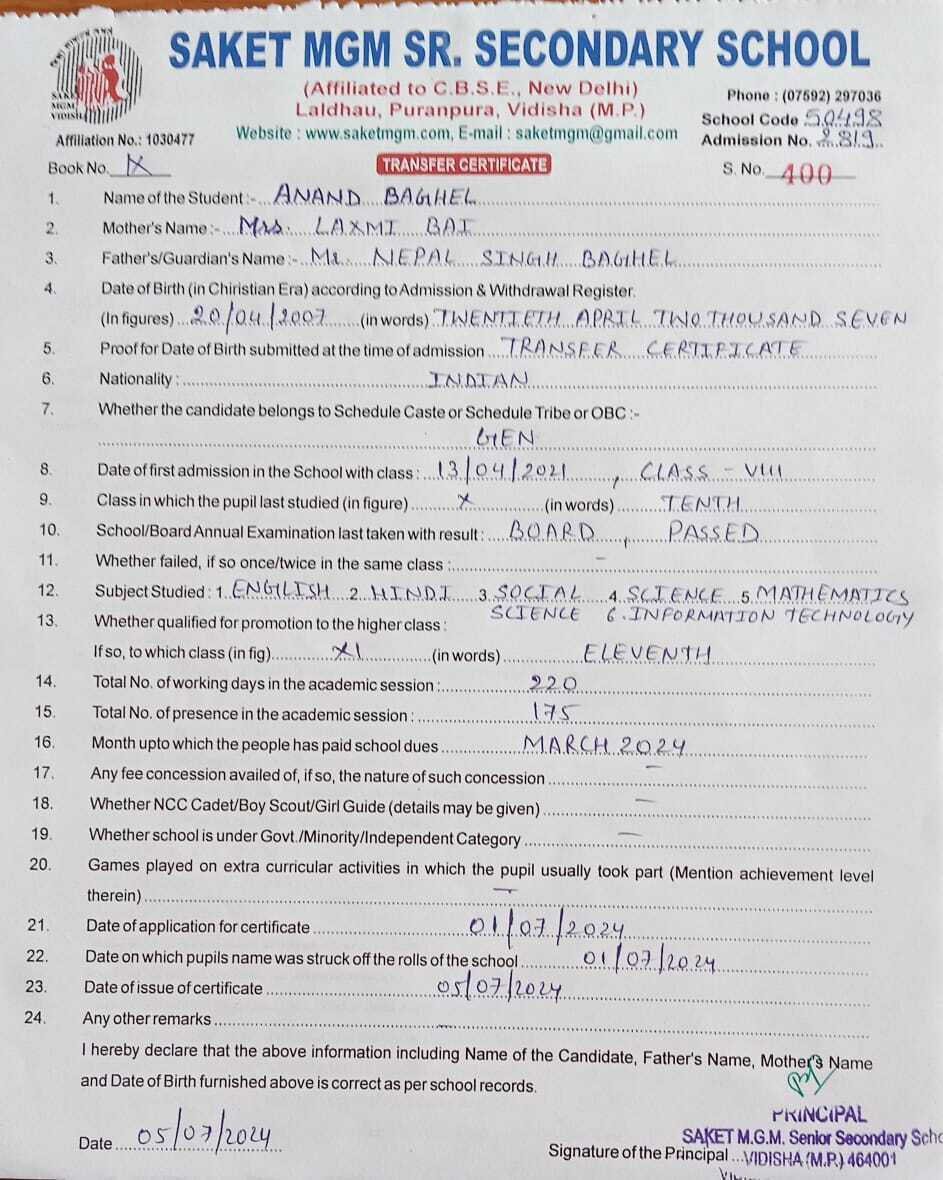 SAKET MGM SR. SECONDARY SCHOOL
(Affiliated to C.B.S.E., New Delhi)
Laldhau, Puranpura, Vidisha (M.P.)
Website : www.saketmgm.com, E-mail : saketmgm@gmail.com
SAKET
MGM
VIDISHA
Affiliation No.: 1030477
Phone : (07592) 297036
School Code 50498
Admission No. 2819
Book No. IX
TRANSFER CERTIFICATE
S. No. 400
1. Name of the Student :- ANAND BAGHEL
2. Mother's Name :- Mrs. LAXMI BAI
3. Father's/Guardian's Name :- Mr. NEPAL SINGH BAGHEL
4. Date of Birth (in Chiristian Era) according to Admission & Withdrawal Register.
(In figures) 20/04/2007 (in words) TWENTIETH APRIL TWO THOUSAND SEVEN
5. Proof for Date of Birth submitted at the time of admission TRANSFER CERTIFICATE
6. Nationality : INDIAN
7. Whether the candidate belongs to Schedule Caste or Schedule Tribe or OBC :-
GEN
8. Date of first admission in the School with class : 13/04/2021, CLASS - VIII
9. Class in which the pupil last studied (in figure) X (in words) TENTH
10. School/Board Annual Examination last taken with result : BOARD, PASSED
11. Whether failed, if so once/twice in the same class : –
12. Subject Studied : 1. ENGLISH 2. HINDI 3. SOCIAL 4. SCIENCE 5. MATHEMATICS
SCIENCE 6. INFORMATION TECHNOLOGY
13. Whether qualified for promotion to the higher class :
If so, to which class (in fig) XI (in words) ELEVENTH
14. Total No. of working days in the academic session : 220
15. Total No. of presence in the academic session : 175
16. Month upto which the people has paid school dues MARCH 2024
17. Any fee concession availed of, if so, the nature of such concession –
18. Whether NCC Cadet/Boy Scout/Girl Guide (details may be given) –
19. Whether school is under Govt./Minority/Independent Category –
20. Games played on extra curricular activities in which the pupil usually took part (Mention achievement level
therein) –
21. Date of application for certificate 01/07/2024
22. Date on which pupils name was struck off the rolls of the school 01/07/2024
23. Date of issue of certificate 05/07/2024
24. Any other remarks –
I hereby declare that the above information including Name of the Candidate, Father's Name, Mother's Name
and Date of Birth furnished above is correct as per school records.
Date 05/07/2024
PRINCIPAL
SAKET M.G.M. Senior Secondary Scho
Signature of the Principal VIDISHA (M.P.) 464001